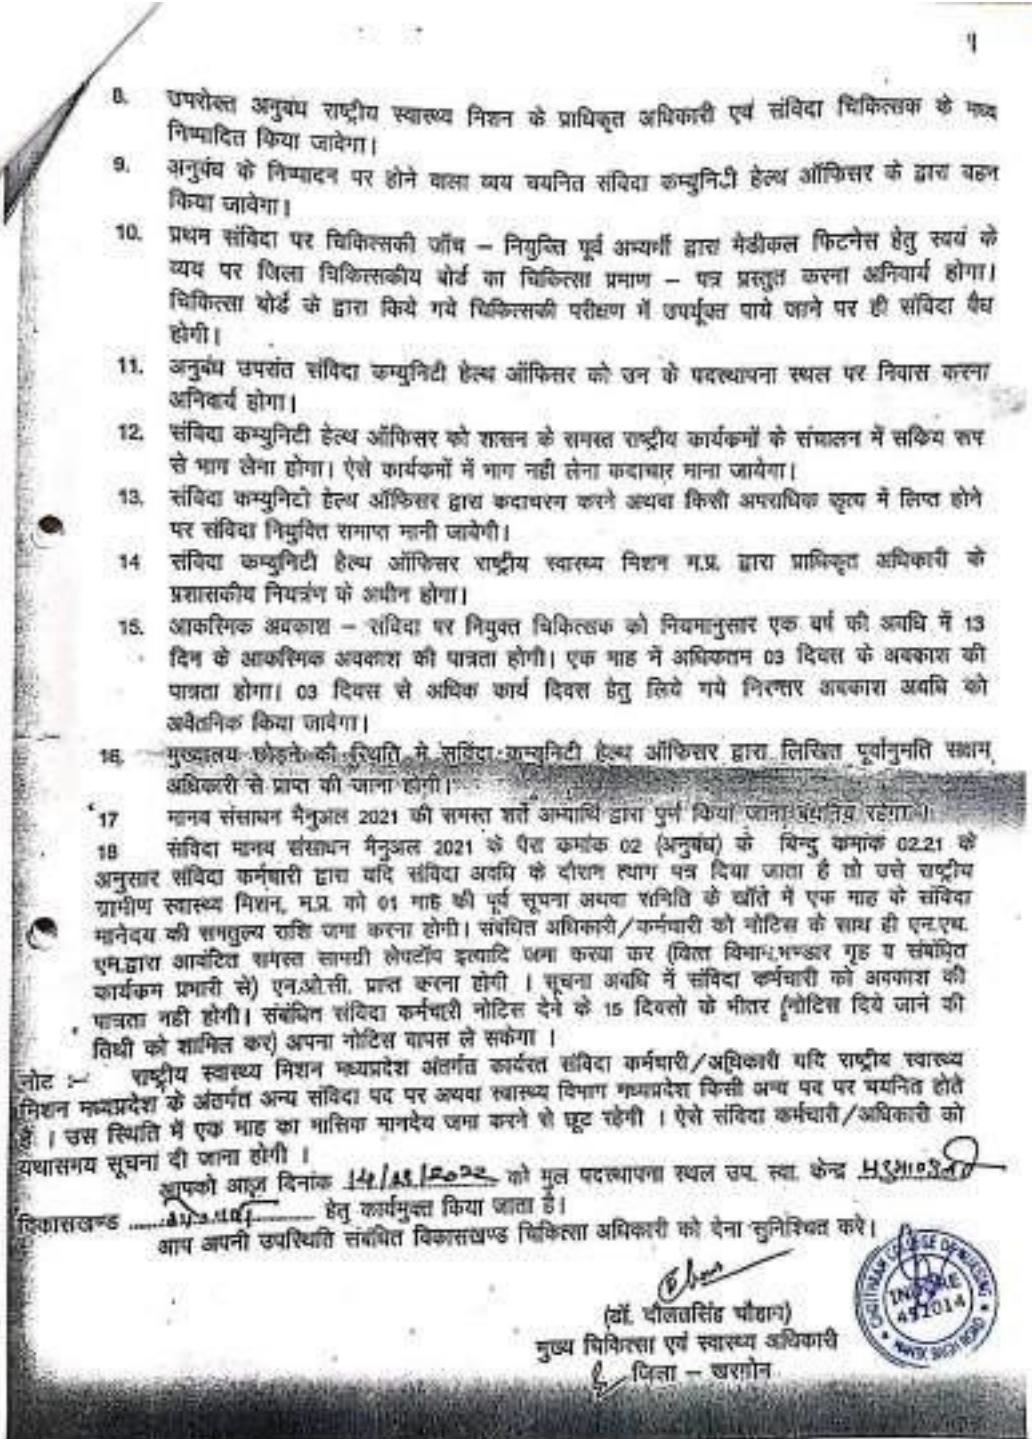 8. उपरोक्त अनुबंध राष्ट्रीय स्वास्थ्य मिशन के प्राधिकृत अधिकारी एवं संविदा चिकित्सक के मध्य
निष्पादित किया जावेगा।
9. अनुबंध के निष्पादन पर होने वाला व्यय चयनित संविदा कम्युनिटी हेल्थ ऑफिसर के द्वारा वहन
किया जावेगा।
10. प्रथम संविदा पर चिकित्सकी जॉच – नियुक्ति पूर्व अभ्यर्थी द्वारा मेडीकल फिटनेस हेतु स्वयं के
व्यय पर जिला चिकित्सकीय बोर्ड का चिकित्सा प्रमाण – पत्र प्रस्तुत करना अनिवार्य होगा।
चिकित्सा बोर्ड के द्वारा किये गये चिकित्सकी परीक्षण में उपर्युक्त पाये जाने पर ही संविदा वैध
होगी।
11. अनुबंध उपरांत संविदा कम्युनिटी हेल्थ ऑफिसर को उन के पदस्थापना स्थल पर निवास करना
अनिवार्य होगा।
12. संविदा कम्युनिटी हेल्थ ऑफिसर को शासन के समस्त राष्ट्रीय कार्यकमों के संचालन में सकिय रूप
से भाग लेना होगा। ऐसे कार्यकमों में भाग नही लेना कदाचार माना जायेगा।
13. संविदा कम्युनिटी हेल्थ ऑफिसर द्वारा कदाचरण करने अथवा किसी अपराधिक कृत्य में लिप्त होने
पर संविदा नियुक्ति समाप्त मानी जावेगी।
14 संविदा कम्युनिटी हेल्थ ऑफिसर राष्ट्रीय स्वास्थ्य मिशन म.प्र. द्वारा प्राधिकृत अधिकारी के
प्रशासकीय नियत्रंण के अधीन होगा।
15. आकस्मिक अवकाश – संविदा पर नियुक्त चिकित्सक को नियमानुसार एक वर्ष की अवधि में 13
दिन के आकस्मिक अवकाश की पात्रता होगी। एक माह में अधिकतम 03 दिवस के अवकाश की
पात्रता होगा। 03 दिवस से अधिक कार्य दिवस हेतु लिये गये निरन्तर अवकाश अवधि को
अवैतनिक किया जावेगा।
16. मुख्यालय छोड़ने की स्थिति मे संविदा कम्युनिटी हेल्थ ऑफिसर द्वारा लिखित पूर्वानुमति सक्षम
अधिकारी से प्राप्त की जाना होगी।
17 मानव संसाधन मैनुअल 2021 की समस्त शर्ते अभ्यार्थि द्वारा पुर्ण किया जाना रहेगा।
18 संविदा मानव संसाधन मैनुअल 2021 के पैरा कमांक 02 (अनुबंध) के बिन्दु कमांक 02.21 के
अनुसार संविदा कर्मचारी द्वारा यदि संविदा अवधि के दौरान त्याग पत्र दिया जाता है तो उसे राष्ट्रीय
ग्रामीण स्वास्थ्य मिशन, म.प्र. को 01 माह की पूर्व सूचना अथवा समिति के खॉते में एक माह के संविदा
मानेदय की समतुल्य राशि जमा करना होगी। संबंधित अधिकारी/कर्मचारी को नोटिस के साथ ही एन.एच.
एम.द्वारा आवंटित समस्त सामग्री लेपटॉप इत्यादि जमा करवा कर (वित्त विभाग,भण्डार गृह व संबंधित
कार्यकम प्रभारी से) एन.ओ.सी. प्राप्त करना होगी । सूचना अवधि में संविदा कर्मचारी को अवकाश की
पात्रता नही होगी। संबंधित संविदा कर्मचारी नोटिस देने के 15 दिवसो के भीतर (नोटिस दिये जाने की
तिथी को शामिल कर) अपना नोटिस वापस ले सकेगा ।
नोट :– राष्ट्रीय स्वास्थ्य मिशन मध्यप्रदेश अंतर्गत कार्यरत संविदा कर्मचारी/अधिकारी यदि राष्ट्रीय स्वास्थ्य
मिशन मध्यप्रदेश के अंतर्गत अन्य संविदा पद पर अथवा स्वास्थ्य विभाग मध्यप्रदेश किसी अन्य पद पर चयनित होते
है । उस स्थिति में एक माह का मासिक मानदेय जमा करने से छूट रहेगी । ऐसे संविदा कर्मचारी/अधिकारी को
यथासमय सूचना दी जाना होगी ।
आपको आज़ दिनांक को मुल पदस्थापना स्थल उप. स्वा. केन्द्र
विकासखण्ड हेतु कार्यमुक्त किया जाता है।
आप अपनी उपस्थिति संबंधित विकासखण्ड चिकित्सा अधिकारी को देना सुनिश्चित करे।
(डॉ. दौलतसिंह चौहान)
मुख्य चिकित्सा एवं स्वास्थ्य अधिकारी
जिला – खरगोन
CHOITHRAM COLLEGE OF NURSING
INDORE
452014
MANIK BAGH ROAD